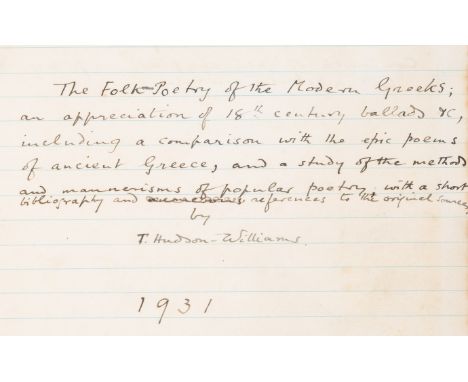 The Folk-Poetry of the Modern Greeks;
an appreciation of 18th century ballads &c,
including a comparison with the epic poems
of ancient Greece, and a study of the methods
and mannerisms of popular poetry with a short
bibliography and references to the original sources
by
T. Hudson-Williams.
1931